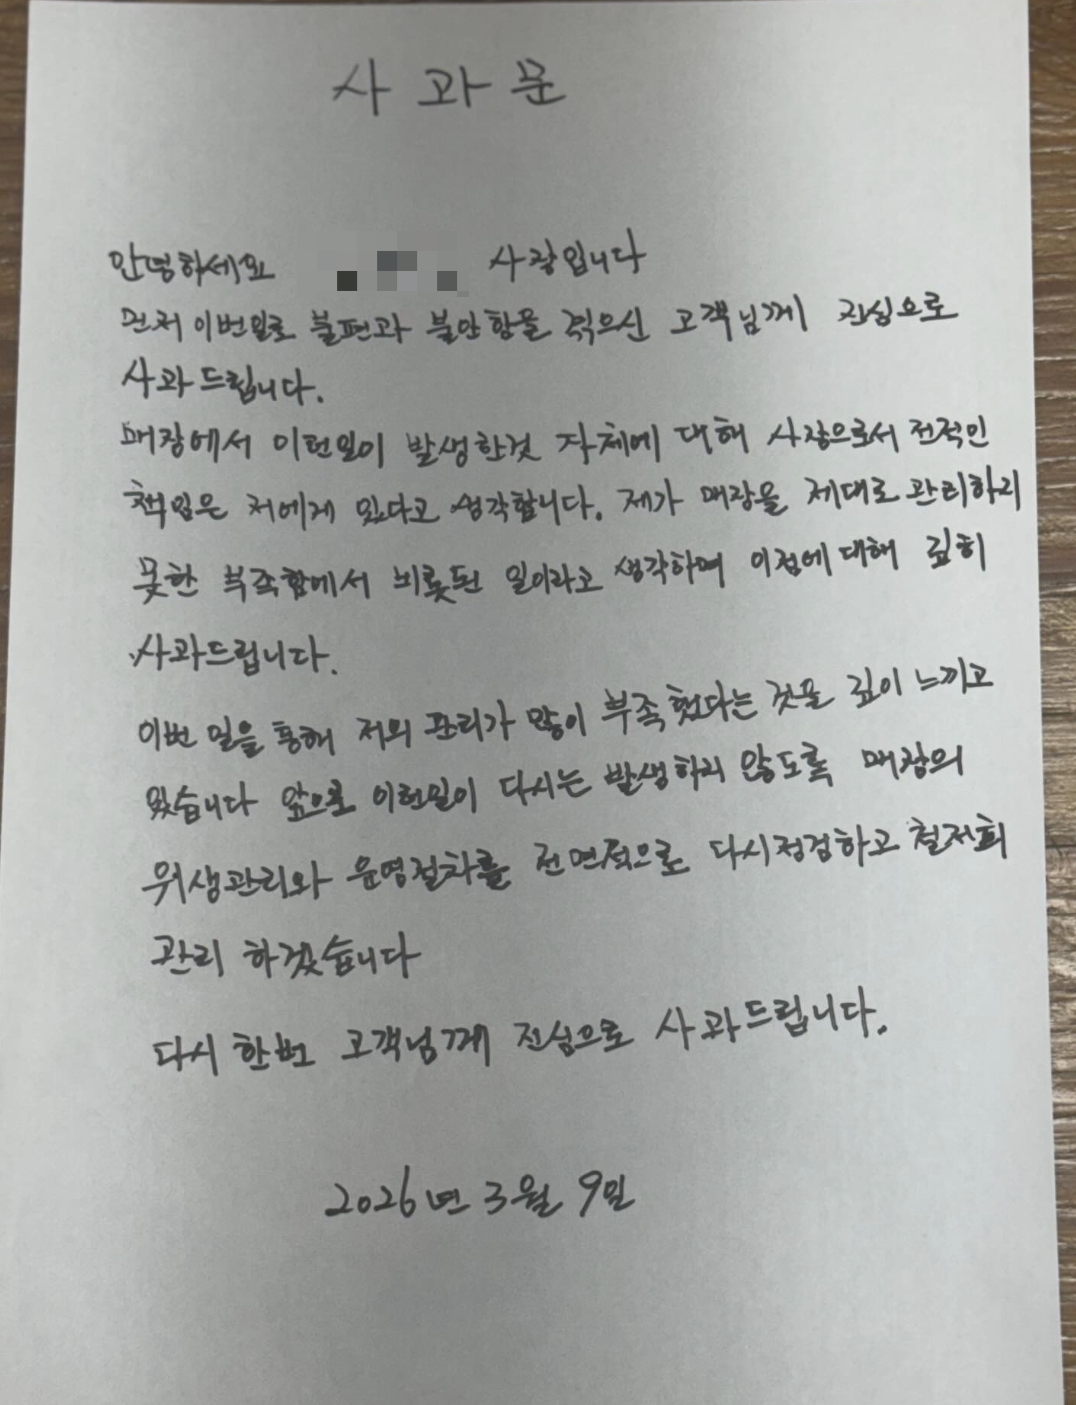 사과문
안녕하세요 사장입니다
먼저 이번일로 불편과 불안함을 겪으신 고객님께 진심으로
사과드립니다.
매장에서 이런일이 발생한것 자체에 대해 사장으로서 전적인
책임은 저에게 있다고 생각합니다. 제가 매장을 제대로 관리하지
못한 부족함에서 비롯된 일이라고 생각하며 이점에 대해 깊히
사과드립니다.
이번 일을 통해 저의 관리가 많이 부족했다는 것을 깊이 느끼고
있습니다 앞으로 이런일이 다시는 발생하지 않도록 매장의
위생관리와 운영절차를 전면적으로 다시점검하고 철저희
관리 하겠습니다
다시 한번 고객님께 진심으로 사과드립니다.
2026년 3월 9일